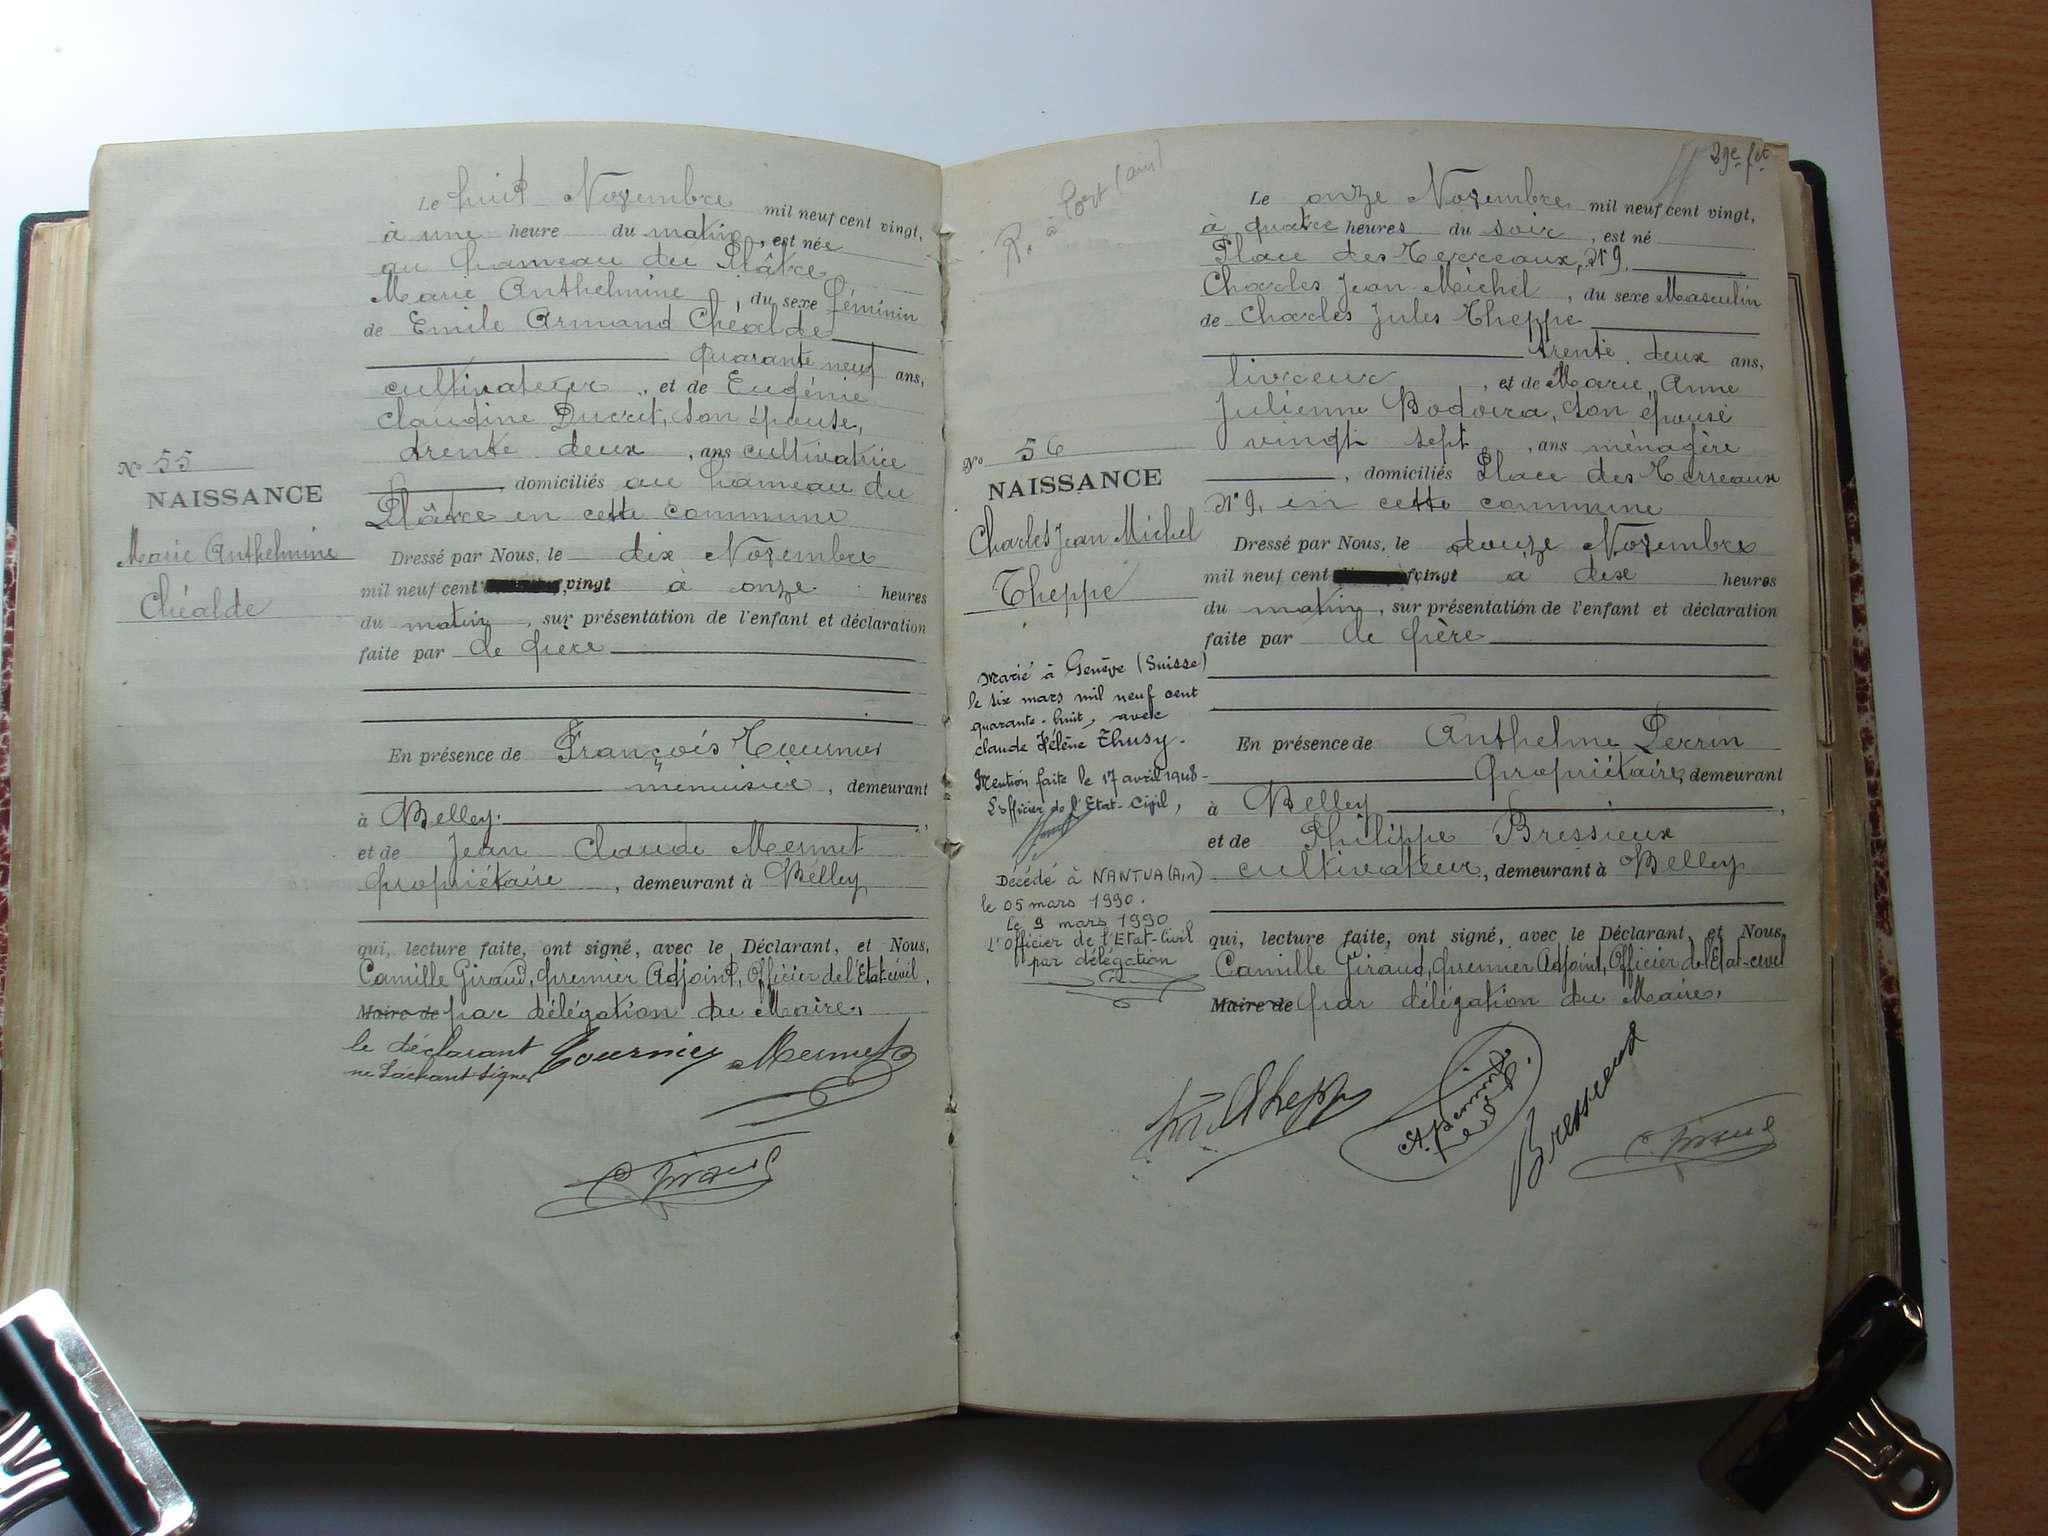 Le huit Novembre mil neuf cent vingt,
à une heure du matin, est née
au hameau du Plâtre
Marie Anthelmine, du sexe féminin
de Emile Armand Chéalde
quarante neuf ans,
cultivateur, et de Eugénie
Claudine Ducret, son épouse,
trente deux, ans cultivatrice
, domiciliés au hameau du
Plâtre en cette commune
Nº 55
NAISSANCE
Marie Anthelmine
Chéalde
Dressé par Nous, le dix Novembre
mil neuf cent vingt à onze heures
du matin, sur présentation de l'enfant et déclaration
faite par le père
En présence de François Tournier
menuisier, demeurant
à Belley,
et de Jean Claude Mermet
propriétaire, demeurant à Belley
qui, lecture faite, ont signé, avec le Déclarant, et Nous,
Camille Giraud, premier Adjoint, Officier de l'Etat civil,
Maire de par délégation du Maire,
le déclarant
ne sachant signer
Tournier Mermet
C. Giraud
29e ft
R. à Port (Ain)
Le onze Novembre mil neuf cent vingt,
à quatre heures du soir, est né
Place des Terreaux, Nº 9,
Charles Jean Michel, du sexe Masculin
de Charles Jules Theppe
trente deux ans,
livreur, et de Marie Anne
Julienne Bodoira, son épouse
vingt sept, ans ménagère
, domiciliés Place des Terreaux
Nº 9, en cette commune
Nº 56
NAISSANCE
Charles Jean Michel
Theppe
Marié à Genève (Suisse)
le six mars mil neuf cent
quarante-huit, avec
Claude Hélène Thusy.
Mention faite le 17 avril 1948-
L'officier de l'Etat-Civil,
Décédé à NANTUA (Ain)
le 05 mars 1990.
Le 9 mars 1990
L'Officier de l'Etat-Civil
par délégation
Dressé par Nous, le douze Novembre
mil neuf cent vingt à dix heures
du matin, sur présentation de l'enfant et déclaration
faite par le père
En présence de Anthelme Perrin
propriétaire, demeurant
à Belley,
et de Philippe Bressieux
cultivateur, demeurant à Belley
qui, lecture faite, ont signé, avec le Déclarant, et Nous,
Camille Giraud, premier Adjoint, Officier de l'Etat-civil
Maire de par délégation du Maire,
Theppe
Bressieux
C. Giraud